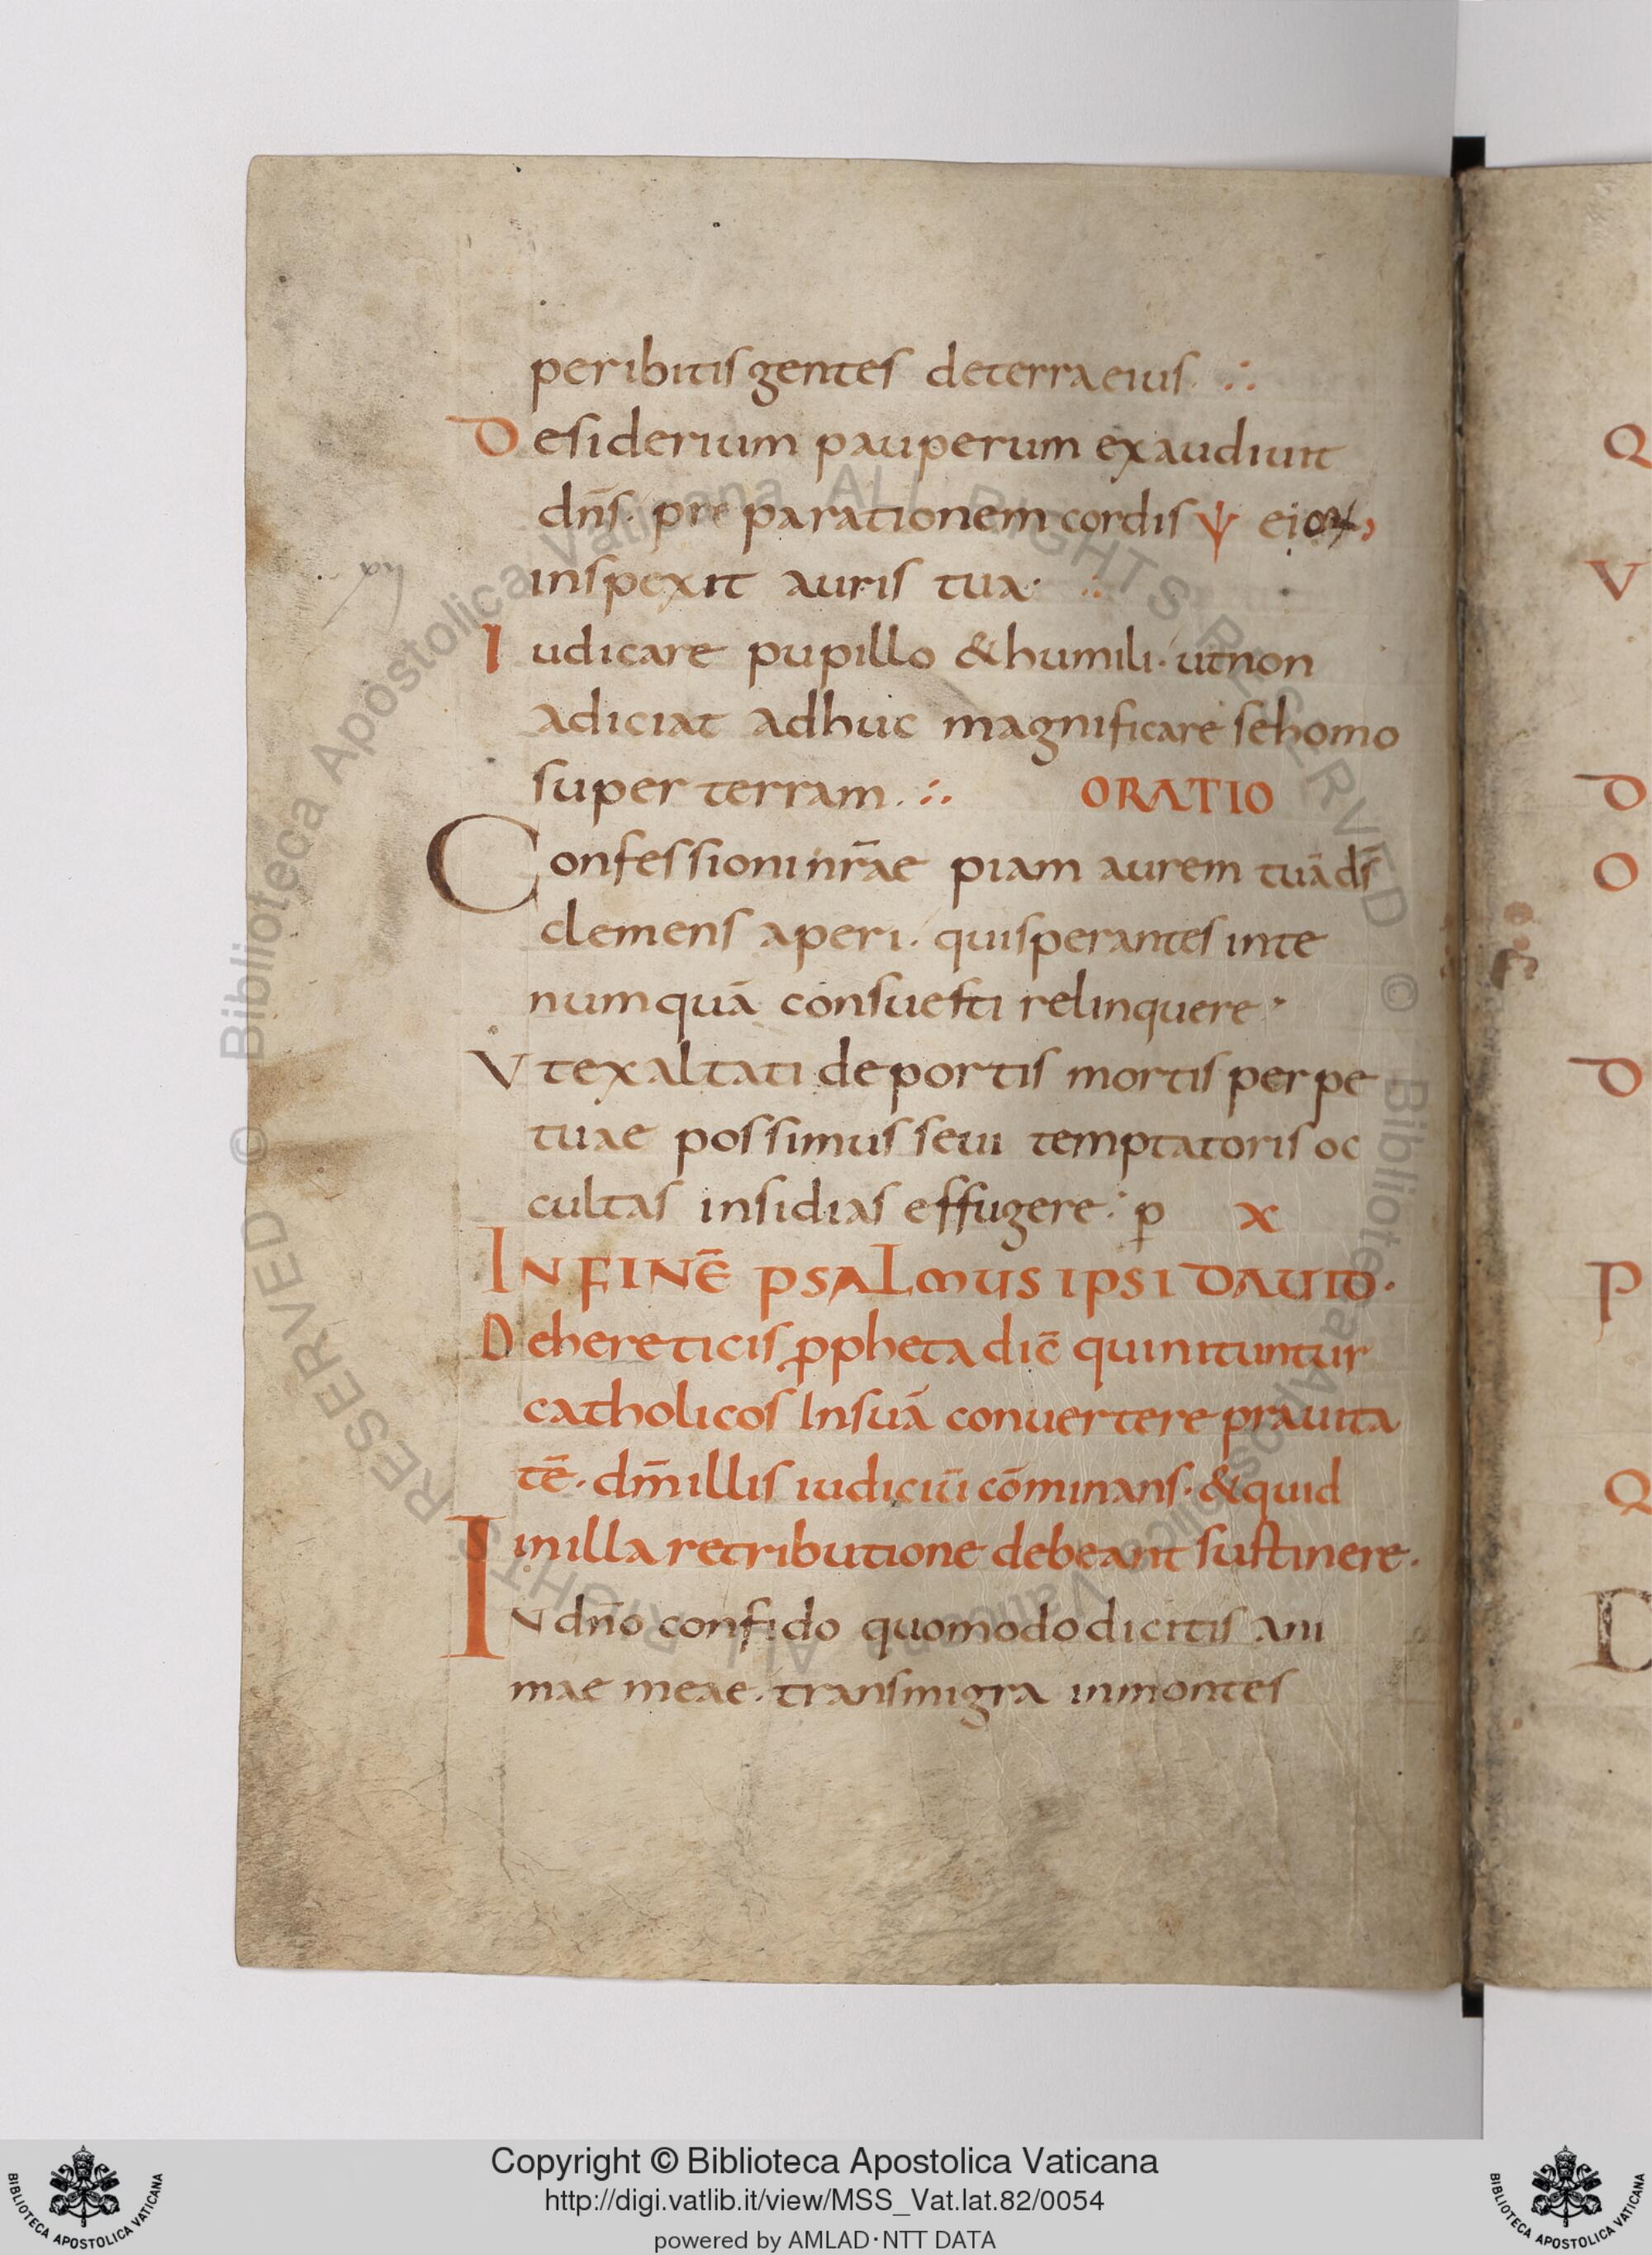 peribitis gentes de terra eius. ∴
Desiderium pauperum exaudiuit
dn̄s. preparationem cordis ψ eiorꝝ,
inspexit auris tua· ∴
Iudicare pupillo & humili· ut non
adiciat adhuc magnificare se homo
super terram. ∴ ORATIO
Confessioni nr̄ae piam aurem tuā ds̄
clemens aperi. qui sperantes in te
numquā consuesti relinquere·
Vt exaltati de portis mortis perpe
tuae possimus seui temptatoris oc
cultas insidias effugere: ꝑ X
IN FINĒ PSALMUS IPSI DAUID·
De hereticis ꝓpheta dic̄ qui nituntur
catholicos In suā conuertere prauita
tē· dm̄ illis iudiciū cōminans· & quid
in illa retributione debeant sustinere·
IN dn̄o confido quomodo dicitis ani
mae meae· transmigra in montes
Q
V
D
O
D
P
Q
© Biblioteca Apostolica Vaticana ALL RIGHTS RESERVED © Biblioteca Apostolica Vaticana ALL RIGHTS RESERVED
Copyright © Biblioteca Apostolica Vaticana
http://digi.vatlib.it/view/MSS_Vat.lat.82/0054
powered by AMLAD·NTT DATA
BIBLIOTECA APOSTOLICA VATICANA
BIBLIOTECA APOSTOLICA VATICANA